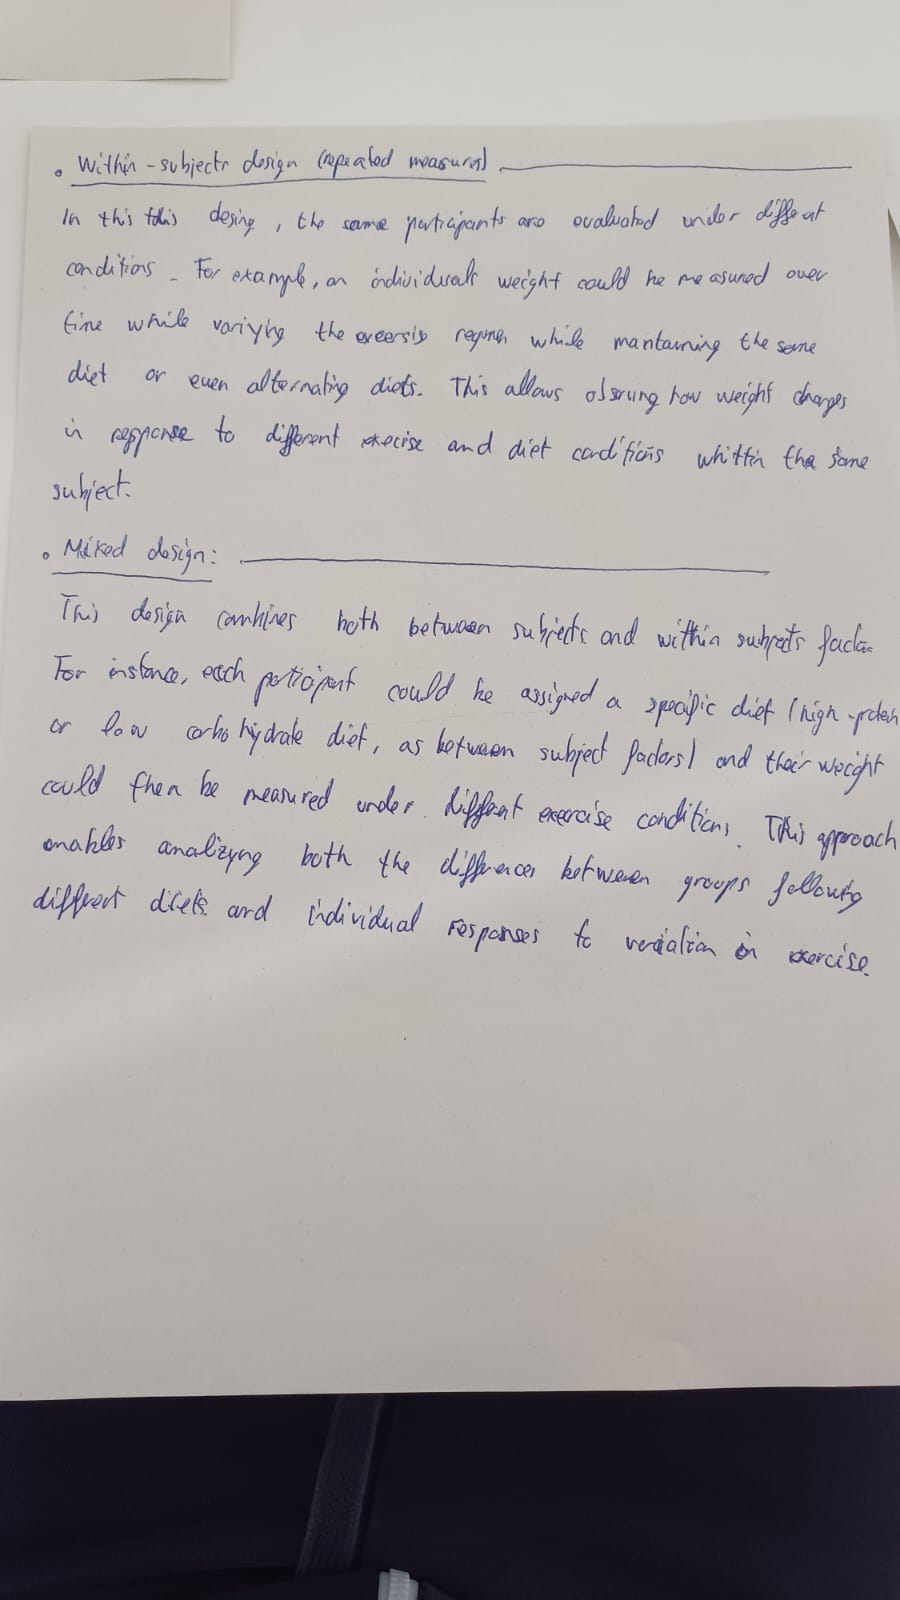 • Within-subjects design (repeated measures)
In this this desing, the same participants are evaluated under different
conditions. For example, an individual's weight could be measured over
time while variying the exersis regime while mantaining the same
diet or even alternating diets. This allows obsrving how weight changes
in response to different execise and diet conditions whittin the same
subject.
• Mixed design:
This design combines both between subjects and within subjects factor
For instance, each participant could be assigned a specific diet (high-protein
or low carbohydrate diet, as between subject factors) and their weight
could then be measured under different exercise conditions. This approach
enables analizyng both the differences between groups following
different diets and individual responses to variation in exercise.